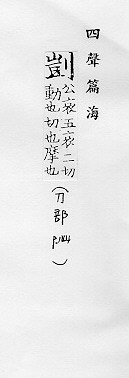 四聲篇海
剴
公哀五哀二切
動也切也摩也
(刀部 )